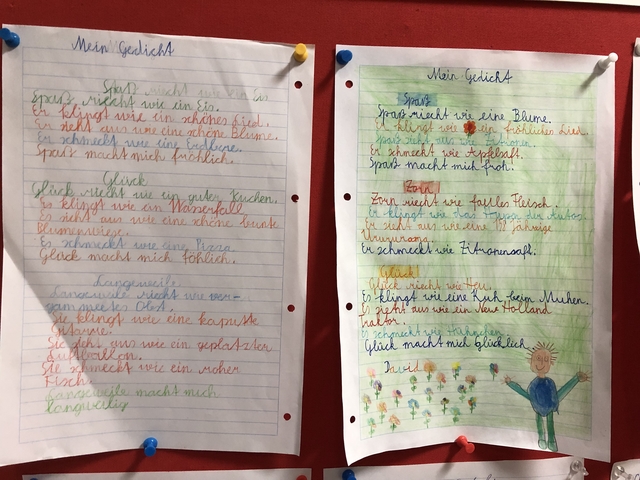 Mein Gedicht
Spaß riecht wie ein Eis
Spaß riecht wie ein Eis.
Er klingt wie ein schönes Lied.
Er sieht aus wie eine schöne Blume.
Er schneckt wie eine Erdbere.
Spaß macht mich fröhlich.
Glück
Glück riecht wie ein guter Kuchen.
Es klingt wie ein Wasserfall
Es sieht aus wie eine schöne bunte
Blumenwiese.
Es schmeckt wie eine Pizza
Glück macht mich föhlich.
Langeweile
Langeweile riecht wie ver-
gammeltes Obst.
Sie klingt wie eine kaputte
Gitarre.
Sie sieht aus wie ein geplatzter
Luftballon.
Sie schmeckt wie ein roher
Fisch
Langeweile macht mich
langweilig
Mein Gedicht
Spaß
Spaß riecht wie eine Blume.
Er klingt wie ein fröhliches Lied.
Spaß sieht aus wie Zitronen.
Er schmeckt wie Apfelsaft.
Spaß macht mich froh.
Zorn
Zorn riecht wie faules Fleisch.
Er klingt wie das
Er sieht aus wie eine jährige
Urururoma.
Er schmeckt wie Zitronensaft.
Glück
Glück riecht wie Heu.
Es klingt wie eine Kuh beim Muhen.
Es sieht aus wie ein New Holland
Traktor.
Es schmeckt wie Hähnchen.
Glück macht mich Glücklich
David